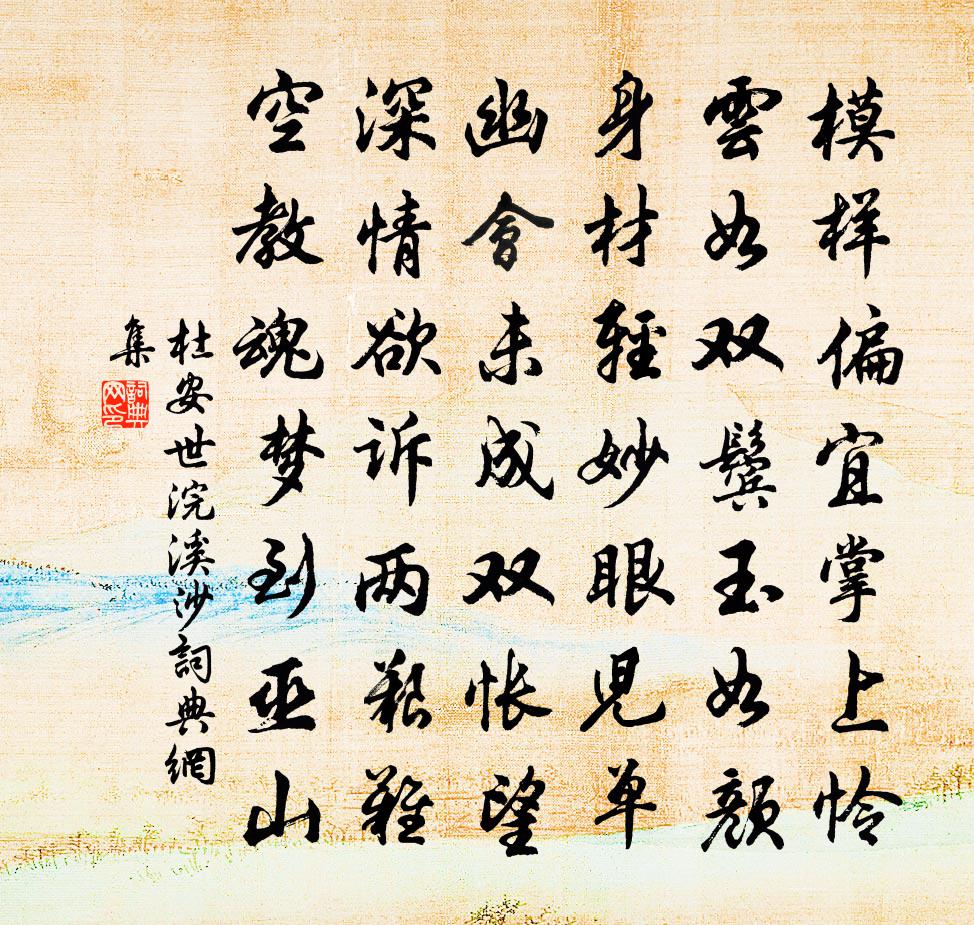 模样偏宜掌上怜
雲如双鬓玉如颜
身材輕妙眼儿单
幽會未成双怅望
深情欲诉两艱難
空教魂梦到巫山
杜安世浣溪沙詞典網
集
詞典
网印